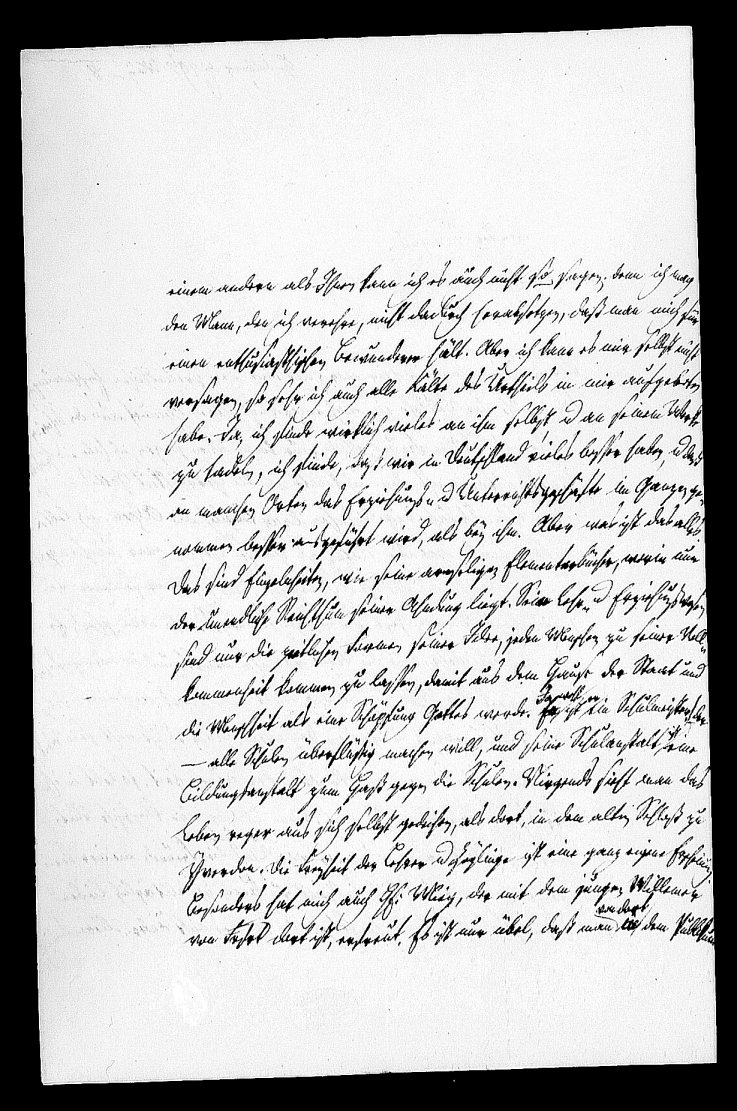 einem andern als Ihnen kann ich es auch nicht so sagen; denn ich mag
den Mann, den ich verehre, nicht dadurch herabsetzen, daß man mich für
einen enthusiastischen Bewunderer hält. Aber ich kann es mir selbst nicht
versagen, so sehr ich auch alle Kälte des Urtheils in mir aufgeboten
habe. Ja, ich finde wirklich vieles an ihm selbst u an seinem Werke
zu tadeln, ich finde, daß wir in Deutschland vieles besser haben, u daß
an manchen Orten das Erziehungs- u Unterrichtsgeschäfte im Ganzen ge-
nommen besser ausgeführt wird, als bey ihm. Aber was ist das alles?
Das sind Einzelnheiten, wie seine armseligen Elementarbücher, worin nur
der unendliche Reichthum seiner Ahndung liegt. Seine Lehr- u Erziehungsweisen
sind nur die zeitlichen Formen seiner Idee, jeden Menschen zu seiner Voll-
kommenheit kommen zu lassen, damit aus dem Hause der Staat und
die Menschheit als eine Schöpfung Gottes werde. ist ein Schulmeister, der
— alle Schulen überflüssig machen will, und seine Schulanstalt ist eine
Bildungsanstalt zum Haß gegen die Schulen. Nirgends sieht man das
Leben reger aus sich selbst gedeihen, als dort, in dem alten Schloß zu
Yverdon. Die Freyheit der Lehrer u Zöglinge ist eine ganz eigene Erscheinung.
Besonders hat mich auch H. Mieg, der mit dem jungen Willemer
von Frkft dort ist, erfreut. Es ist nur übel, daß man von dort dem Publikum